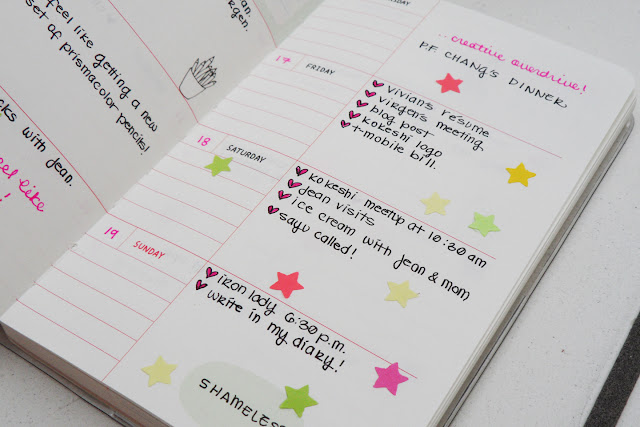 an.
rgen.
feel like
getting a new
set of prismacolor
pencils!
cks with Jean.
eel like
!
..creative overdrive!
P.F. CHANG'S DINNER
17
FRIDAY
vivian's resume
virgen's meeting
blog post
kokeshi logo
t-mobile bill.
18
SATURDAY
kokeshi meetup at 10:30 am
Jean visits
ice cream with Jean & mom
sayu called!
19
SUNDAY
iron lady 6:30 p.m.
write in my diary!
SHAMELESS